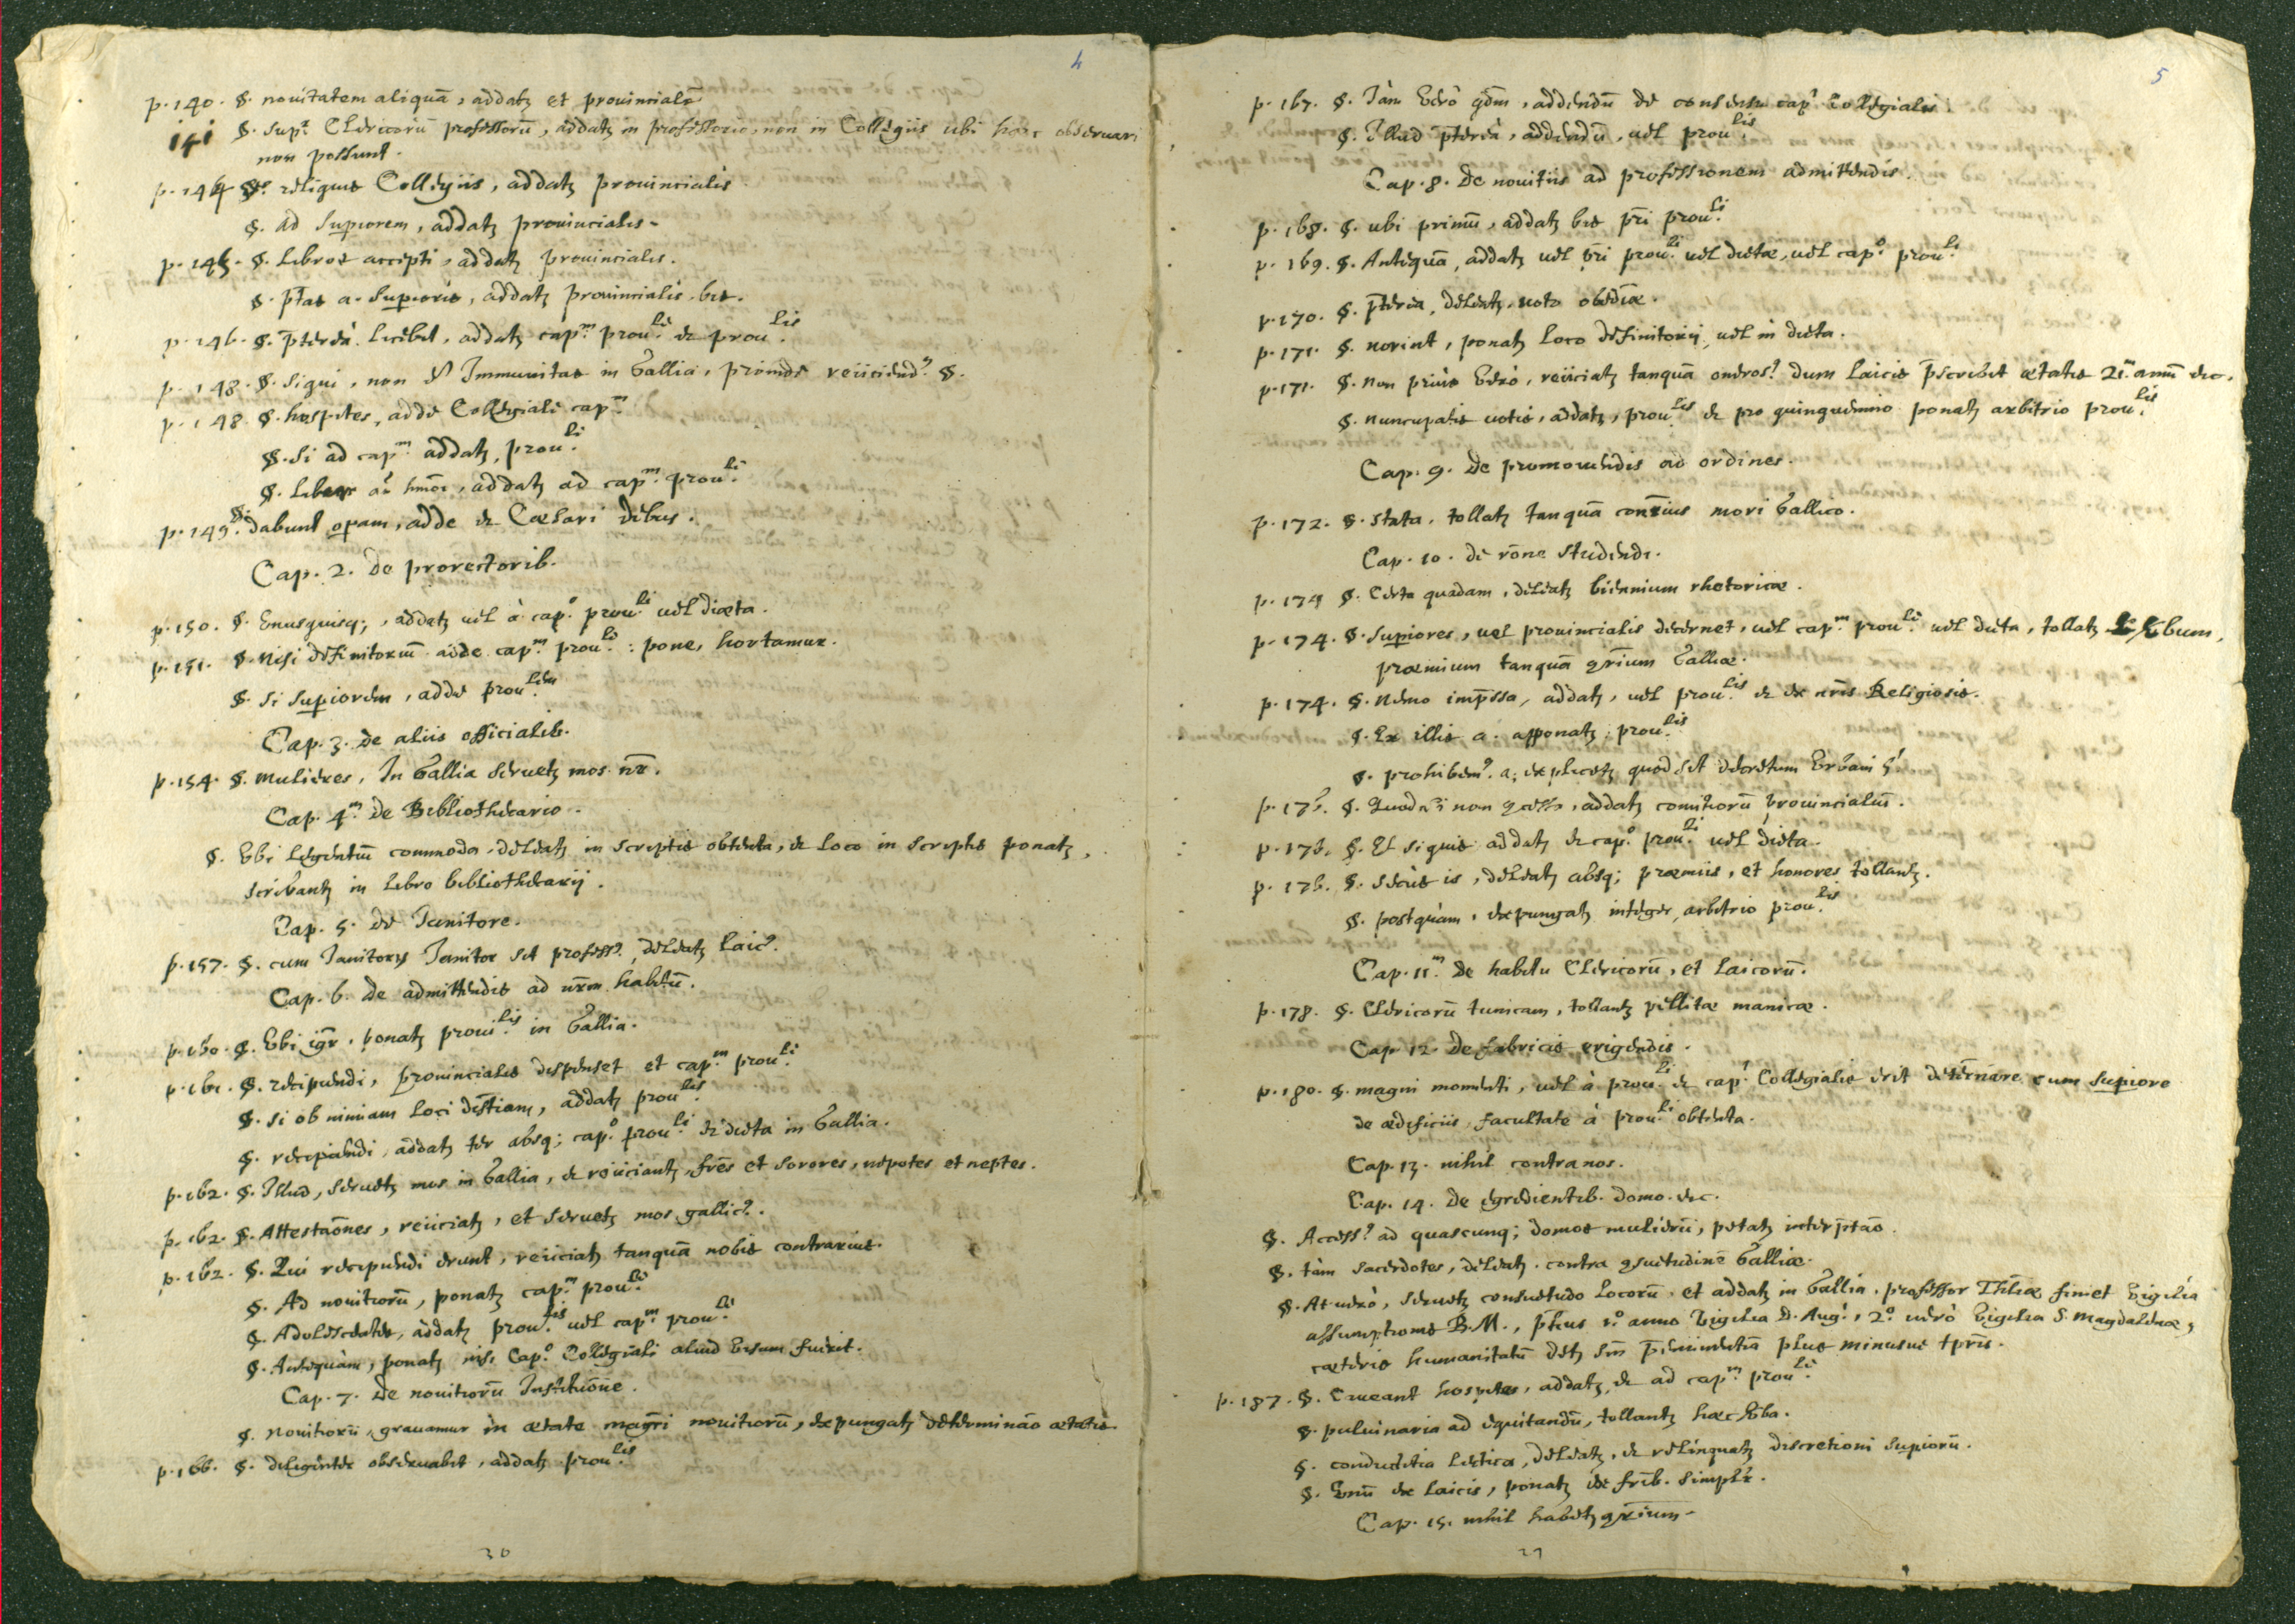 4
p. 140. §. nouitatem aliquā, addatʒ et prouincialē
141 §. Supr. Clericorū professorū, addatʒ in professorio, non in Collegiis ubi haec obseruari
non possunt.
p. 144 §. reliquis Collegiis, addatʒ prouincialis.
§. ad Supiorem, addatʒ prouincialis.
p. 145. §. Libros accepti, addatʒ prouincialis.
§. ptas a. Supioris, addatʒ prouincialis. bis.
p. 146. §. p̄tereà licebit, addatʒ capm. prouli. & proulis.
p. 148. §. Siqui, non est Immunitas in Gallia, proinde reiiciend9. §.
p. 148. §. hospites, adde Collegiali capm.
§. Si ad capm. addatʒ, prouli.
§. addatʒ ad capm. prouli.
p. 149. §. dabunt opam, adde & Caesari debus.
Cap. 2. de prorectorib.
p. 150. §. Unusquisq;, addatʒ uel à capo. prouli. uel diaeta.
p. 151. §. Nisi definitoriū adde capm. prouli.: pone, hortamur.
§. Si Supiorem, adde proulem.
Cap. 3. de aliis officialib.
p. 154. §. mulieres, In Gallia seruetʒ mos nr̄.
Cap. 4m. de Bibliothecario.
§. Ubi legentiū commoda, deleatʒ in scriptis obtenta, & loco in scriptis ponatʒ,
scribantʒ in libro bibliothecarij.
Cap. 5. de Janitore.
p. 157. §. cum Janitorus Janitor sit profess9, deleatʒ laic9.
Cap. 6. de admittendis ad nr̄m habitū.
p. 160. §. Ubi igr̄, ponatʒ proulis. in Gallia.
p. 161. §. recipiendi, prouincialis dispenset et capm. prouli.
§. si ob nimiam loci distiam, addatʒ proulis.
§. recipiendi, addatʒ ter absq; capo. prouli. & dieta in Gallia.
p. 162. §. Illud, seruetʒ mos in Gallia, & reiiciantʒ fr̄es et sorores, nepotes et neptes.
p. 162. §. Attestaōnes, reiiciatʒ, et seruetʒ mos gallic9.
p. 162. §. Qui recipiendi erunt, reiiciatʒ tanquā nobis contrarius.
§. Ad nouitiorū, ponatʒ capm. prouli.
§. Adolescentes, addatʒ proulis. uel capm. prouli.
§. Antequàm, ponatʒ nisi Capo. Collegiali aliud uisum fuerit.
Cap. 7. de nouitiorū Institūone.
§. Nouitiorū, grauamur in aetate magr̄i nouitiorū, expungatʒ determināo aetatis.
p. 166. §. diligenter obseruabit, addatʒ proulis.
30
5
p. 167. §. Jàm uerò qdm, addendū de consensu capi Collegialis.
§. Illud p̄tereà, addendū, uel proulis.
Cap. 8. de nouitiis ad professionem admittendis.
p. 168. §. ubi primū, addatʒ bis pr̄i prouli.
p. 169. §. Antequā, addatʒ uel pr̄i prouli. uel dietae, uel capo. prouli.
p. 170. §. p̄terea, deleatʒ, uoto obediae.
p. 171. §. norint, ponatʒ loco definitorij, uel in dieta.
p. 171. §. Non priùs uerò, reiiciatʒ tanquā oneros9 dum laicis p̄scribit aetatis 21m. annū &c.
§. nuncupatis uotis, addatʒ, proulis & pro quinquennio ponatʒ arbitrio proulis.
Cap. 9. de promouendis ad ordines.
p. 172. §. Stata, tollatʒ tanquā cont̄rius mori Gallico.
Cap. 10. de rōne studendi.
p. 174 §. Certa quadam, deleatʒ biennium rhetoricae.
p. 174. §. Supiores, uel prouincialis decernet, uel capm. prouli. uel dieta, tollatʒ uerbum,
praemium tanquā 9r̄ium Galliae.
p. 174. §. Nemo imp̄ssa, addatʒ, uel proulis. & ex nr̄is Religiosis.
§. Ex illis a. apponatʒ proulis.
§. prohibem9. a. explicetʒ quod sit decretum Urbani 5i
p. 176. §. Quod si non 9cesse, addatʒ comitiorū prouincialiū.
p. 176. §. Et siquis addatʒ & capo. prouli. uel dieta.
p. 176. §. secùs is, deleatʒ absq; praemiis, et honores tollantʒ.
§. postquàm, expungatʒ integer, arbitrio proulis.
Cap. 11m. de habitu Clericorū, et laicorū.
p. 178. §. Clericorū tunicam, tollantʒ pellitae manicae.
Cap. 12. de fabricis erigendis.
p. 180. §. magni momenti, uel à prouli. & capi Collegialis erit determ̄are cum Supiore
de aedificiis, facultate à prouli. obtenta.
Cap. 13. nihil contra nos.
Cap. 14. de egredientib. domo. &c.
§. Access9 ad quascunq; domos mulierū, petatʒ interp̄tāo.
§. tàm sacerdotes, deleatʒ. contra 9suetudinē Galliae.
§. At uerò, seruetʒ consuetudo locorū. et addatʒ in Gallia, professor Thliae finiet Vigilia
assumptionis B.M., p̄lius 1o anno Vigilia D. Augi, 2o uerò Vigilia S. Magdalenae,
caeteris humanitatū detʒ sm̄ p̄eminentiā plus minusue tpr̄is.
p. 187. §. Caueant hospites, addatʒ, & ad capm. prouli.
§. puluinaria ad equitandū, tollantʒ haec uba.
§. conductitia lectica, deleatʒ, & relinquatʒ discretioni Supiorū.
§. Unū ex laicis, ponatʒ de fr̄ib. simplr̄.
Cap. 15. nihil habetʒ 9r̄ium.
27